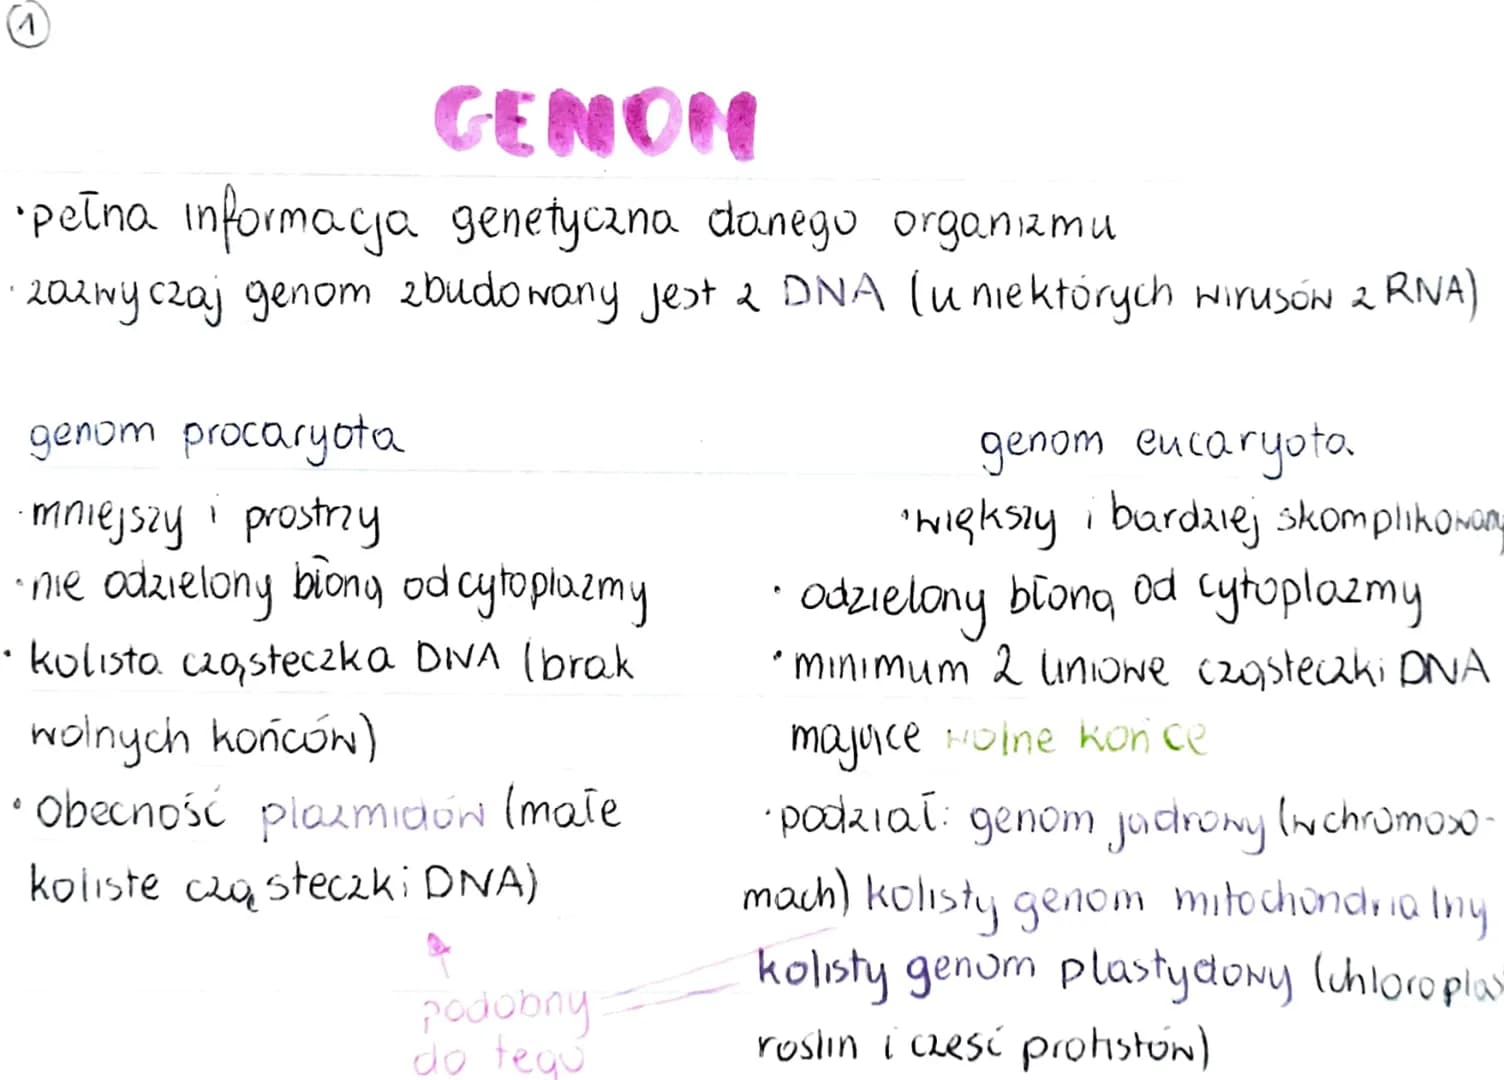 1
GENOM
•pełna informacja genetyczna danego organizmu
•zazwyczaj genom zbudowany jest z DNA (u niektórych wirusów z RNA)
genom procaryota
•mniejszy i prostrzy
•nie odzielony błoną od cytoplazmy
•kolista cząsteczka DNA (brak
wolnych końców)
•obecność plazmidów (małe
koliste cząsteczki DNA)
podobny
do tego
genom eucaryota
•większy i bardziej skomplikowany
•odzielony błoną od cytoplazmy
•minimum 2 liniowe cząsteczki DNA
mające wolne końce
•podział: genom jądrowy (w chromoso-
mach) kolisty genom mitochondrialny
kolisty genom plastydowy (chloroplas
roślin i cześć protistów)